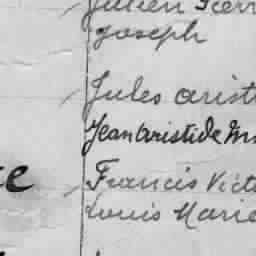 Julien Pierr
Joseph
Jules arist
Jean Aristide
Francis Vict
Louis Marie